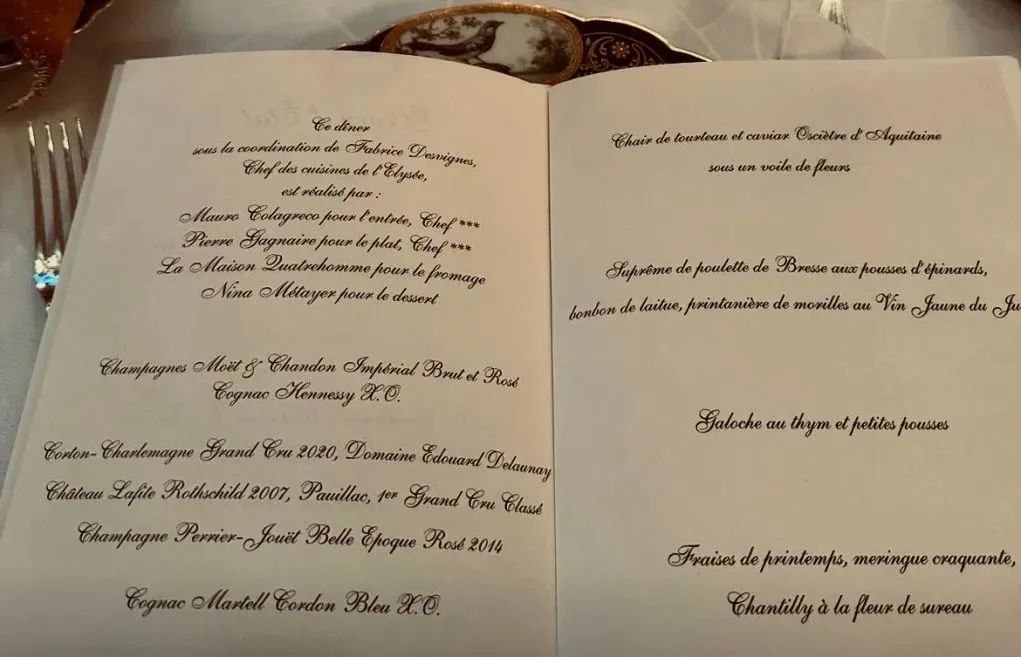 Ce dîner
sous la coordination de Fabrice Desvignes,
Chef des cuisines de l'Elysée,
est réalisé par :
Mauro Colagreco pour l'entrée, Chef ***
Pierre Gagnaire pour le plat, Chef ***
La Maison Quatrehomme pour le fromage
Nina Métayer pour le dessert
Champagnes Moët & Chandon Impérial Brut et Rosé
Cognac Hennessy X.O.
Corton-Charlemagne Grand Cru 2020, Domaine Edouard Delaunay
Château Lafite Rothschild 2007, Pauillac, 1er Grand Cru Classé
Champagne Perrier-Jouët Belle Epoque Rosé 2014
Cognac Martell Cordon Bleu X.O.
Chair de tourteau et caviar Osciètre d'Aquitaine
sous un voile de fleurs
Suprême de poulette de Bresse aux pousses d'épinards,
bonbon de laitue, printanière de morilles au Vin Jaune du Ju
Galoche au thym et petites pousses
Fraises de printemps, meringue craquante,
Chantilly à la fleur de sureau